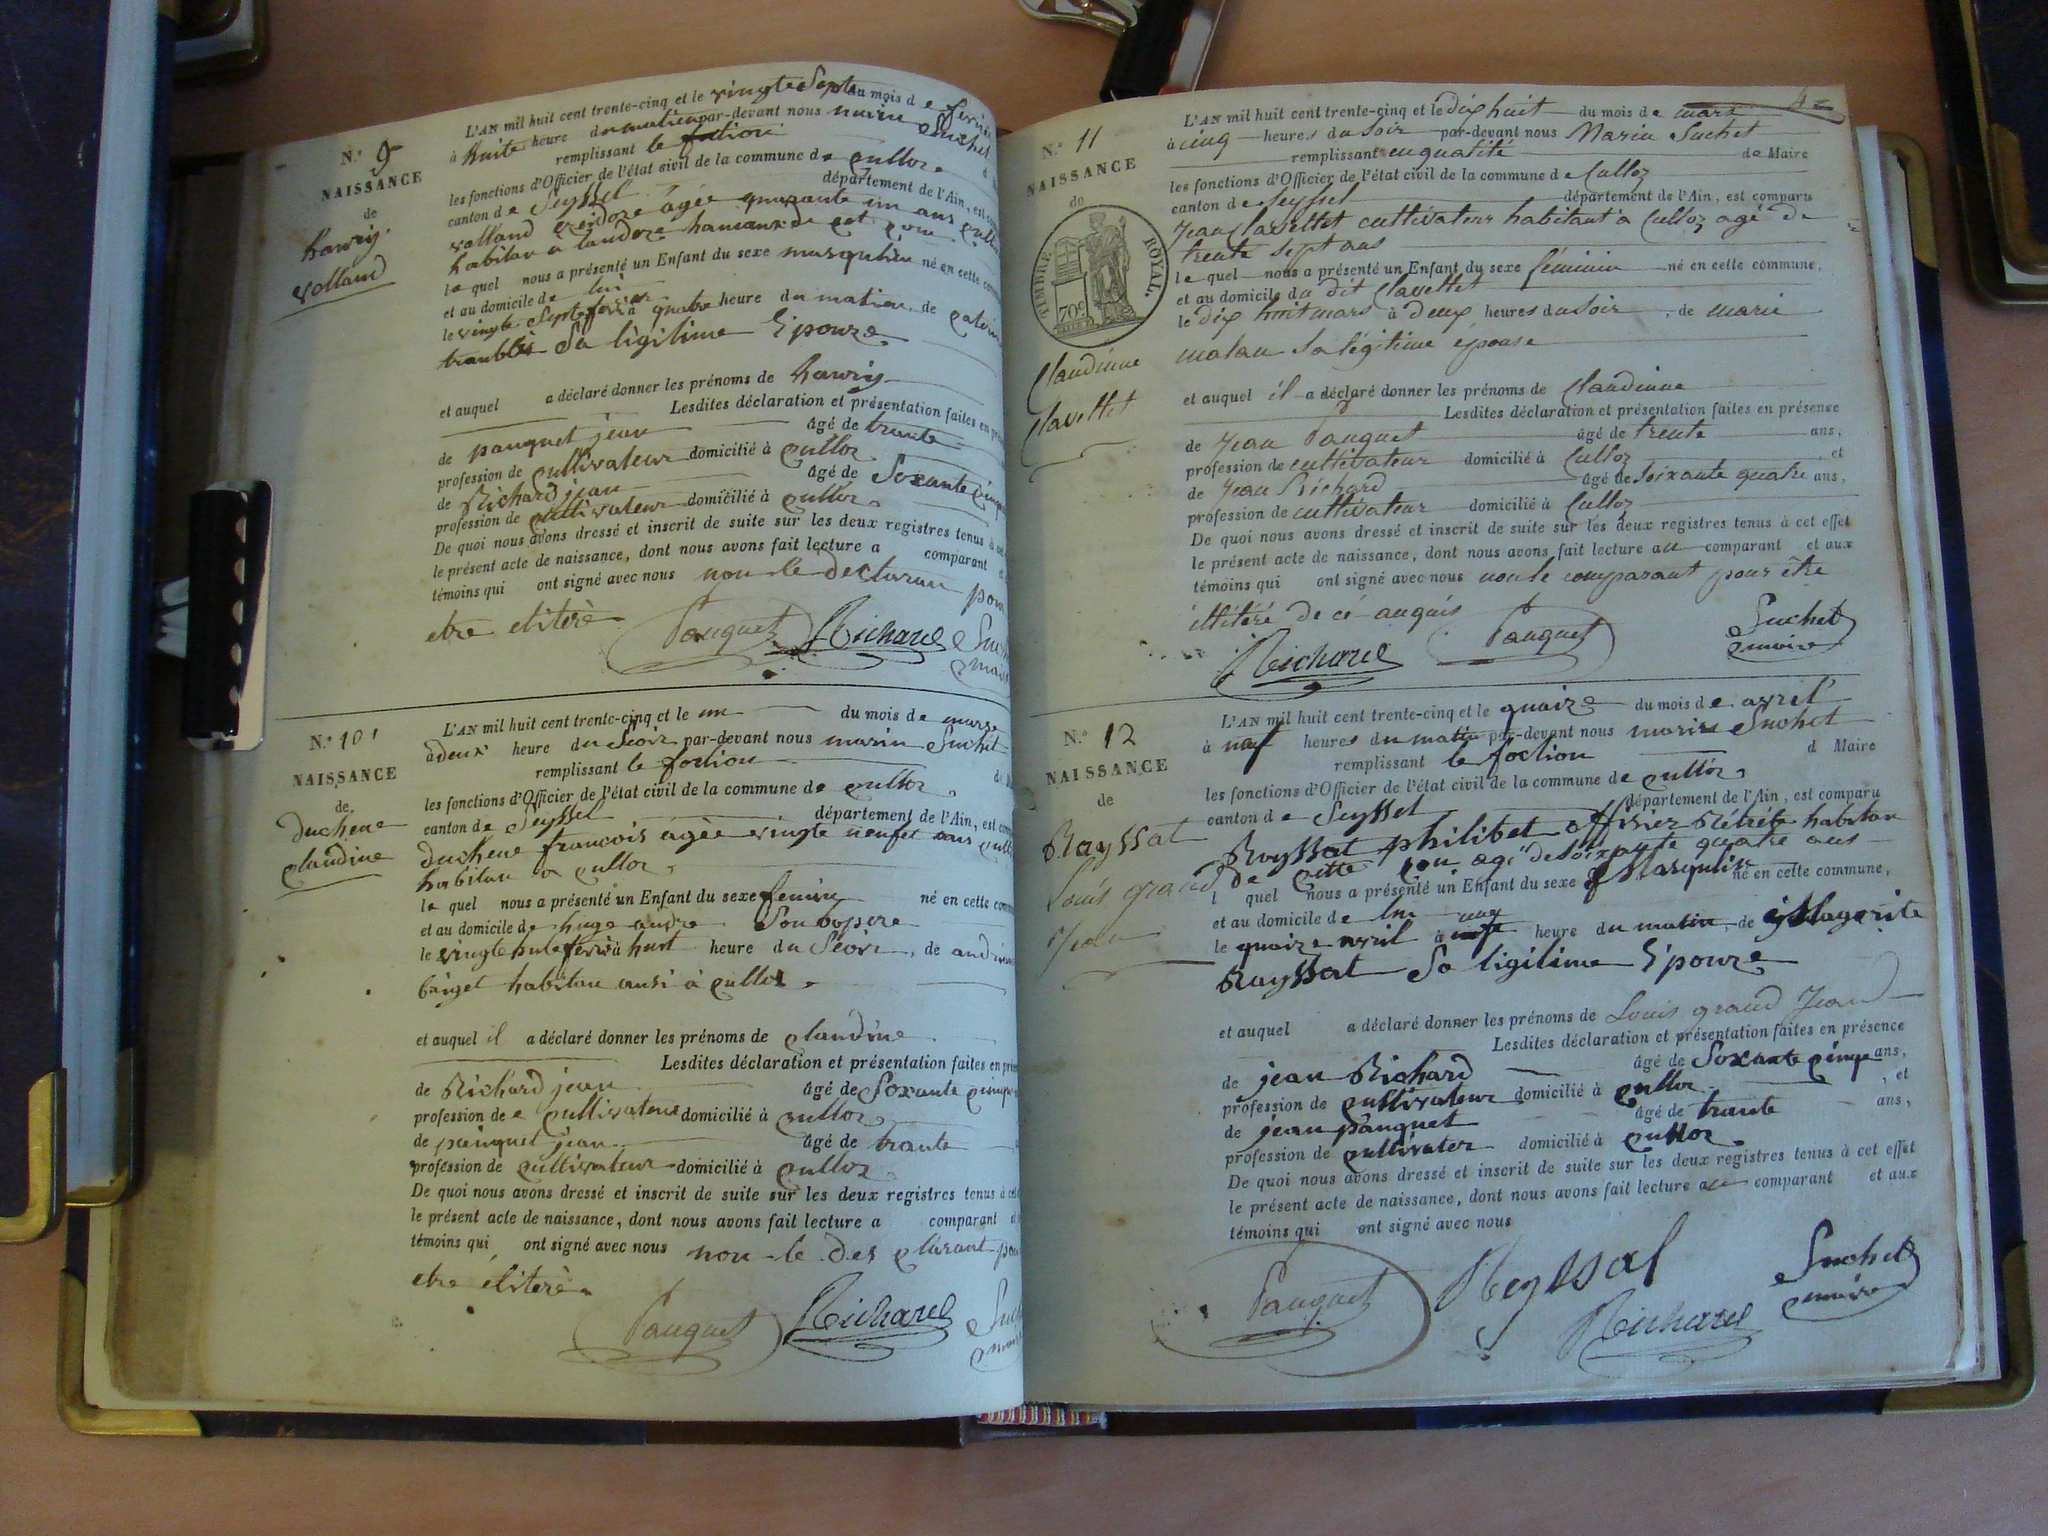 N.° 9
NAISSANCE
de
hanriy
volland
L'AN mil huit cent trente-cinq et le vingte Septe du mois de fevrie
à huite heure du matien par-devant nous marin Suchet
remplissant le fotion
les fonctions d'Officier de l'état civil de la commune de culloz
canton de Seyssel département de l'Ain, est com
volland âgée quarante un ans
habitan a landoze hamaux de cet com
le quel nous a présenté un Enfant du sexe masqulien né en cette comm
et au domicile de lui
le vingte Septe fevri à quatre heure du matien, de
Sa ligitime Epouze
et auquel a déclaré donner les prénoms de hanriy
Lesdites déclaration et présentation faites en pré
de pauquet jean âgé de trante
profession de cultivateur domicilié à culloz
de Richard jean âgé de Soxante cinq
profession de cultivateur domicilié à culloz
De quoi nous avons dressé et inscrit de suite sur les deux registres tenus à
le présent acte de naissance, dont nous avons fait lecture a comparant
témoins qui ont signé avec nous non le declaran pour
etre eliterè
Pauquet Richard Suchet
maire
N.° 10
NAISSANCE
de
duchene
claudine
L'AN mil huit cent trente-cinq et le un du mois de marse
à deux heure du Séoir par-devant nous marin Suchet
remplissant le fotion
les fonctions d'Officier de l'état civil de la commune de culloz
canton de Seyssel département de l'Ain, est com
duchene francois âgée vingte neuf ans
habitan a culloz
le quel nous a présenté un Enfant du sexe feminin né en cette com
et au domicile de huge andre Son bopere
le vingte huite fevri à huit heure du Séoir, de
habitan ausi à culloz
et auquel il a déclaré donner les prénoms de claudine
Lesdites déclaration et présentation faites en prés
de Richard jean âgé de Soxante cinq
profession de cultivateur domicilié à culloz
de pauquet jean âgé de trante
profession de cultivateur domicilié à culloz
De quoi nous avons dressé et inscrit de suite sur les deux registres tenus à cet
le présent acte de naissance, dont nous avons fait lecture a comparant
témoins qui ont signé avec nous non le des clarant pour
etre éliterè
Pauquet Richard
N.° 11
NAISSANCE
de
TIMBRE ROYAL.
70c
Claudinne
Clavellet
L'AN mil huit cent trente-cinq et le dix huit du mois de mars
à cinq heures du soir par-devant nous Marin Suchet
remplissant en qualité de Maire
les fonctions d'Officier de l'état civil de la commune de Culloz
canton de Seyssel département de l'Ain, est comparu
Jean Clavellet cultivateur habitant à Culloz agé de
trente sept ans
le quel nous a présenté un Enfant du sexe féminin né en cette commune,
et au domicile du dit Clavellet
le dix huit mars à deux heures du soir, de marie
malan sa légitime épouse
et auquel il a déclaré donner les prénoms de Claudinne
Lesdites déclaration et présentation faites en présence
de Jean Pauquet âgé de trente ans,
profession de cultivateur domicilié à Culloz et
de Jean Richard âgé de soixante quatre ans,
profession de cultivateur domicilié à Culloz
De quoi nous avons dressé et inscrit de suite sur les deux registres tenus à cet effet
le présent acte de naissance, dont nous avons fait lecture au comparant et aux
témoins qui ont signé avec nous non le comparant pour être
illétéré de ce anquis
Richard Pauquet Suchet
maire
N.° 12
NAISSANCE
de
Rayssat
Louis grand
Jean
L'AN mil huit cent trente-cinq et le quaize du mois de avril
à neuf heures du matin par-devant nous marin Suchet
remplissant le foction d Maire
les fonctions d'Officier de l'état civil de la commune de culloz
canton de Seyssel département de l'Ain, est comparu
Rayssat philibet offisier Rétréte habitan
de cette com agé de soixante quatre ans
l quel nous a présenté un Enfant du sexe Masqulin né en cette commune,
et au domicile de lui
le quaize avril à heure du matin, de Magerite
Rayssat Sa ligitime Epouze
et auquel a déclaré donner les prénoms de Louis grand Jean
Lesdites déclaration et présentation faites en présence
de jean Richard âgé de Soxante cinq ans,
profession de cultivateur domicilié à culloz, et
de jean pauquet âgé de trante ans,
profession de cultivater domicilié à culloz
De quoi nous avons dressé et inscrit de suite sur les deux registres tenus à cet effet
le présent acte de naissance, dont nous avons fait lecture au comparant et aux
témoins qui ont signé avec nous
Pauquet Reyssal Richard Suchet
maire